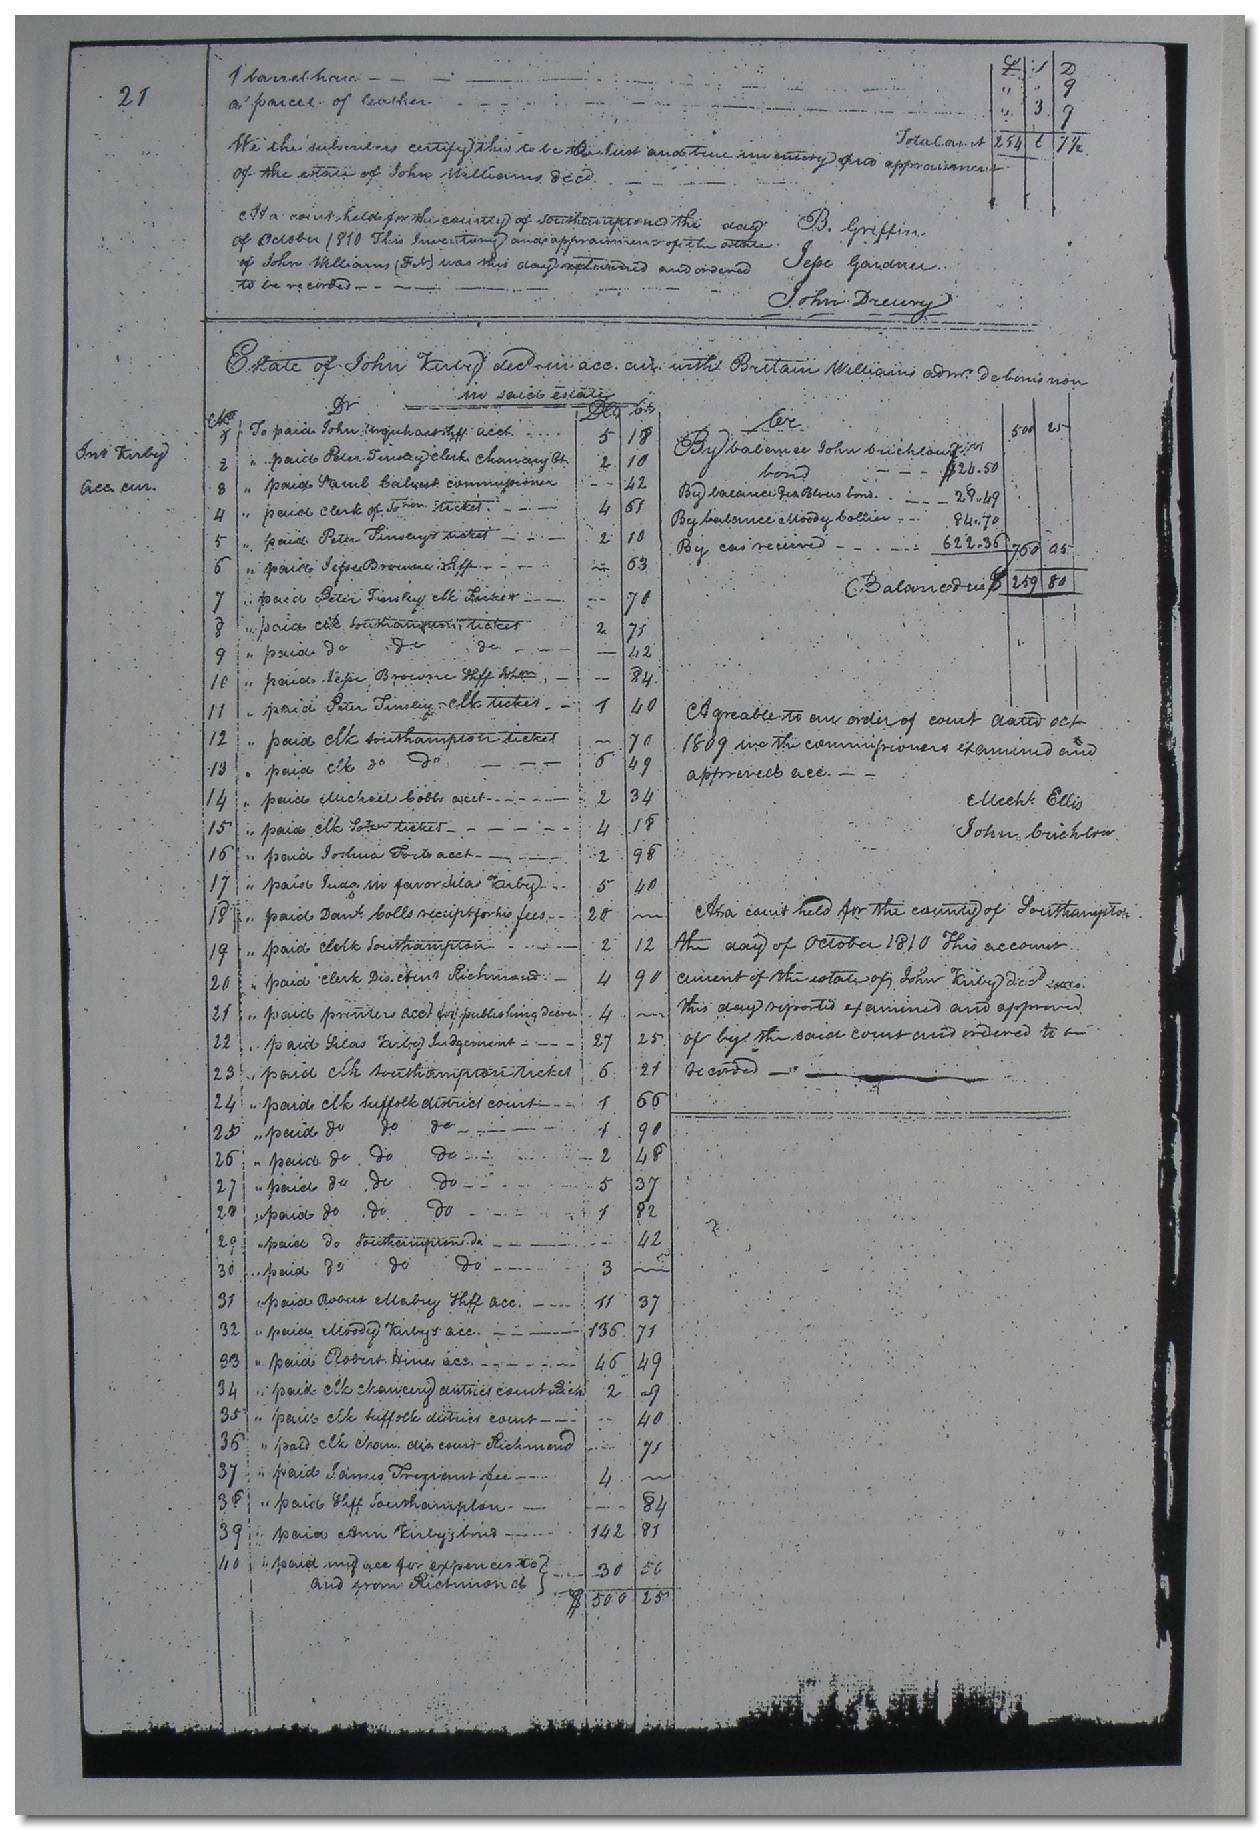 21
£ S D
1 barrel hair — — — " " 9
a parcel of leather — — — " 3 9
Total am't 254 6 7½
We the subscribers certify this to be the just and true inventory and appraisement
of the estate of John Williams decd
At a court held for the county of Southampton the day
of October 1810 This Inventory and appraisement of the estate
of John Williams (F.N) was this day returned and ordered
to be recorded
B. Griffin
Jesse Gardner
John Drewry
Estate of John Kirby decd in acc. cur. with Britain Williams admr. debonis non
in said estate
Kirby
acc. cur.
Dr Dlls Cts
No 1 To paid John Urquhart Shff acct 5 18
2 " paid Peter Tinsley clerk chancery Ct. 2 10
3 " paid Saml Calvert commissioner -- 42
4 " paid clerk of So'ton ticket 4 61
5 " paid Peter Tinsleys ticket 2 10
6 " paid Jesse Browne Shff — 63
7 " paid Peter Tinsley clk ticket -- 70
8 " paid clk Southampton ticket 2 75
9 " paid do do do — 42
10 " paid Jesse Browne Shff — -- 84
11 " paid Peter Tinsley clk ticket 1 40
12 " paid clk Southampton ticket — 70
13 " paid clk do do 6 49
14 " paid Michael Cobbs acct 2 34
15 " paid clk ticket 4 18
16 " paid Joshua Forts acct 2 98
17 " paid Judg. in favor Silas Kirby 5 40
18 " paid Danl. Colls receipt for his fees 20 —
19 " paid clerk Southampton 2 12
20 " paid clerk Dis. Court Richmond 4 90
21 " paid printers acct for publishing decree 4 —
22 " paid Silas Kirby Judgement 27 25
23 " paid clk Southampton ticket 6 21
24 " paid clk Suffolk district court 1 66
25 " paid do do do 1 90
26 " paid do do do 2 48
27 " paid do do do 5 37
28 " paid do do do 1 82
29 " paid do Southampton do -- 42
30 " paid do do do 3 —
31 " paid Robert Mabry Shff acc. 11 37
32 " paid Moody Kirbys acc. 136 71
33 " paid Robert Hines acc. 46 49
34 " paid clk chancery district court Rich 2 9
35 " paid clk Suffolk district court -- 40
36 " paid clk chan. dis. court Richmond -- 71
37 " paid James fee 4 —
38 " paid Shff Southampton -- 84
39 " paid Ann Kirbys bond 142 81
40 " paid my acc for expences to
and from Richmond 30 56
$ 500 25
Cr.
500 25
By balance John Crichlow
bond $24.50
By balance bond 28.49
By balance Moody Collier 84.70
By cas recieved 622.36 760 05
Balance due $ 259 80
Agreable to an order of court dated oct
1809 we the commissioners examined and
approved acc.
Mech. Ellis
John Crichlow
At a court held for the county of Southampton
the day of October 1810 This account
current of the estate of John Kirby decd was
this day reported examined and approved
of by the said court and ordered to be
recorded